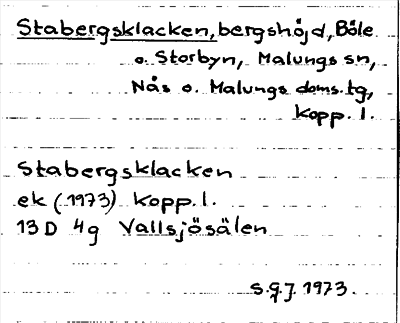 Stabergsklacken, bergshöjd, Böle
o. Storbyn, Malungs sn,
Nås o. Malungs doms. tg,
Kopp. l.
Stabergsklacken
ek (1973) Kopp. l.
13 D 4g Vallsjösälen
1973.